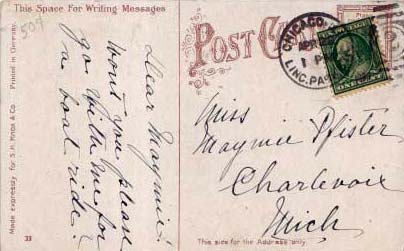 This Space For Writing Messages
50¢
Dear Maymie:
Wont you please
go with me for
a boat ride?
Made expressly for S. H. Knox & Co.
Printed in Germany.
33
POST CA
CHICAGO,
APR
1 P
LINC. PA
ONE CENT
Miss
Maymie Pfister
Charlevoix
Mich
This side for the Address only.